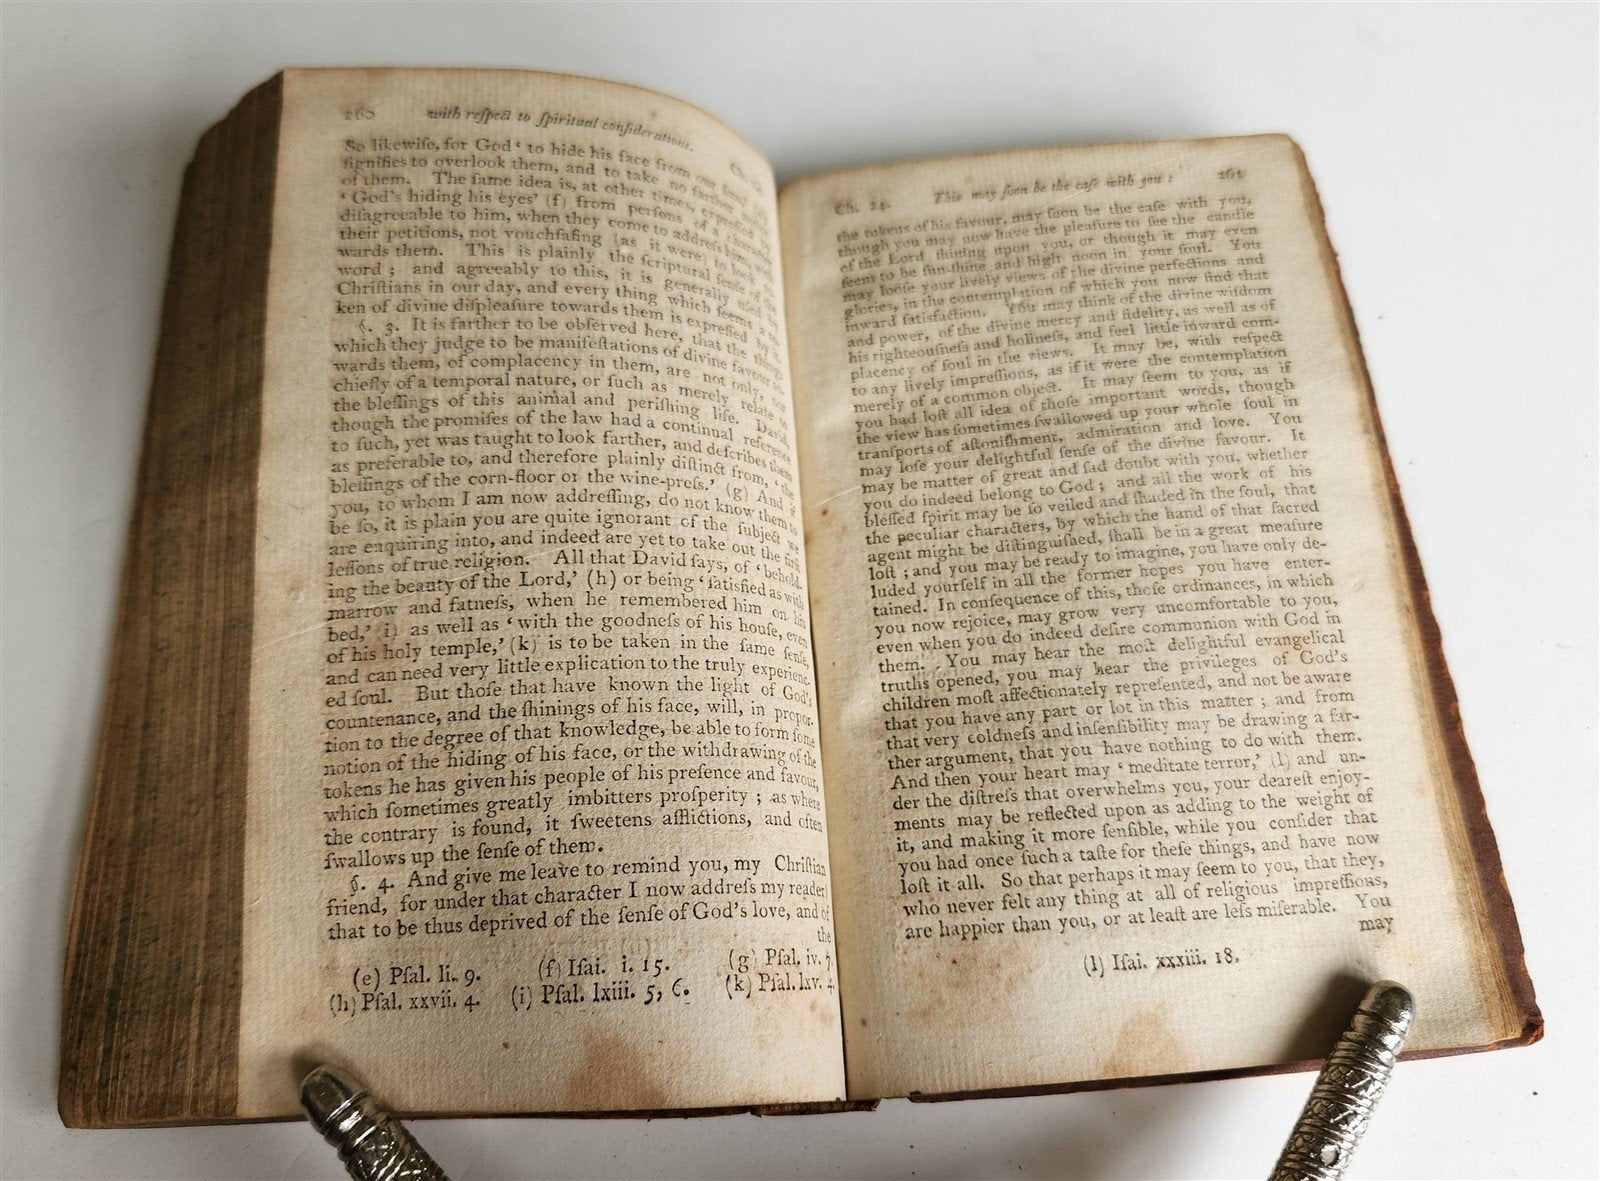 260 with reſpect to ſpiritual conſiderations. Ch. 24.
So likewiſe, for God ‘ to hide his face from our
ſignifies to overlook them, and to take no farther
of them. The ſame idea is, at other times, expreſſed by
‘ God's hiding his eyes’ (f) from perſons of a character
diſagreeable to him, when they come to addreſs him with
their petitions, not vouchſafing (as it were) to look to-
wards them. This is plainly the ſcriptural ſenſe of the
word ; and agreeably to this, it is generally uſed by
Chriſtians in our day, and every thing which ſeems a to-
ken of divine diſpleaſure towards them is expreſſed by it.
§. 3. It is farther to be obſerved here, that the things
which they judge to be manifeſtations of divine favour to-
wards them, of complacency in them, are not only, nor
chiefly of a temporal nature, or ſuch as merely relate to
the bleſſings of this animal and periſhing life. David,
though the promiſes of the law had a continual reference
to ſuch, yet was taught to look farther, and deſcribes them
as preferable to, and therefore plainly diſtinct from, ‘ the
bleſſings of the corn-floor or the wine-preſs.’ (g) And if
you, to whom I am now addreſſing, do not know them to
be ſo, it is plain you are quite ignorant of the ſubject we
are enquiring into, and indeed are yet to take out the firſt
leſſons of true religion. All that David ſays, of ‘ behold-
ing the beauty of the Lord,’ (h) or being ‘ ſatisfied as with
marrow and fatneſs, when he remembered him on his
bed,’ (i) as well as ‘ with the goodneſs of his houſe, even
of his holy temple,’ (k) is to be taken in the ſame ſenſe,
and can need very little explication to the truly experienc-
ed ſoul. But thoſe that have known the light of God's
countenance, and the ſhinings of his face, will, in propor-
tion to the degree of that knowledge, be able to form ſome
notion of the hiding of his face, or the withdrawing of the
tokens he has given his people of his preſence and favour,
which ſometimes greatly imbitters proſperity ; as where
the contrary is found, it ſweetens afflictions, and often
ſwallows up the ſenſe of them.
§. 4. And give me leave to remind you, my Chriſtian
friend, for under that character I now addreſs my reader,
that to be thus deprived of the ſenſe of God's love, and of
the
(e) Pſal. li. 9. (f) Iſai. i. 15. (g) Pſal. iv. 7.
(h) Pſal. xxvii. 4. (i) Pſal. lxiii. 5, 6. (k) Pſal. lxv. 4.
Ch. 24. This may ſoon be the caſe with you : 261
the tokens of his favour, may ſoon be the caſe with you,
though you may now have the pleaſure to ſee the candle
of the Lord ſhining upon you, or though it may even
ſeem to be ſun-ſhine and high noon in your ſoul. You
may looſe your lively views of the divine perfections and
glories, in the contemplation of which you now find that
inward ſatisfaction. You may think of the divine wiſdom
and power, of the divine mercy and fidelity, as well as of
his righteouſneſs and holineſs, and feel little inward com-
placency of ſoul in the views. It may be, with reſpect
to any lively impreſſions, as if it were the contemplation
merely of a common object. It may ſeem to you, as if
you had loſt all idea of thoſe important words, though
the view has ſometimes ſwallowed up your whole ſoul in
tranſports of aſtoniſhment, admiration and love. You
may loſe your delightful ſenſe of the divine favour. It
may be matter of great and ſad doubt with you, whether
you do indeed belong to God ; and all the work of his
bleſſed ſpirit may be ſo veiled and ſhaded in the ſoul, that
the peculiar characters, by which the hand of that ſacred
agent might be diſtinguiſhed, ſhall be in a great meaſure
loſt ; and you may be ready to imagine, you have only de-
luded yourſelf in all the former hopes you have enter-
tained. In conſequence of this, thoſe ordinances, in which
you now rejoice, may grow very uncomfortable to you,
even when you do indeed deſire communion with God in
them. You may hear the moſt delightful evangelical
truths opened, you may hear the privileges of God's
children moſt affectionately repreſented, and not be aware
that you have any part or lot in this matter ; and from
that very coldneſs and inſenſibility may be drawing a far-
ther argument, that you have nothing to do with them.
And then your heart may ‘ meditate terror,’ (l) and un-
der the diſtreſs that overwhelms you, your deareſt enjoy-
ments may be reflected upon as adding to the weight of
it, and making it more ſenſible, while you conſider that
you had once ſuch a taſte for theſe things, and have now
loſt it all. So that perhaps it may ſeem to you, that they,
who never felt any thing at all of religious impreſſions,
are happier than you, or at leaſt are leſs miſerable. You
may
(l) Iſai. xxxiii. 18.